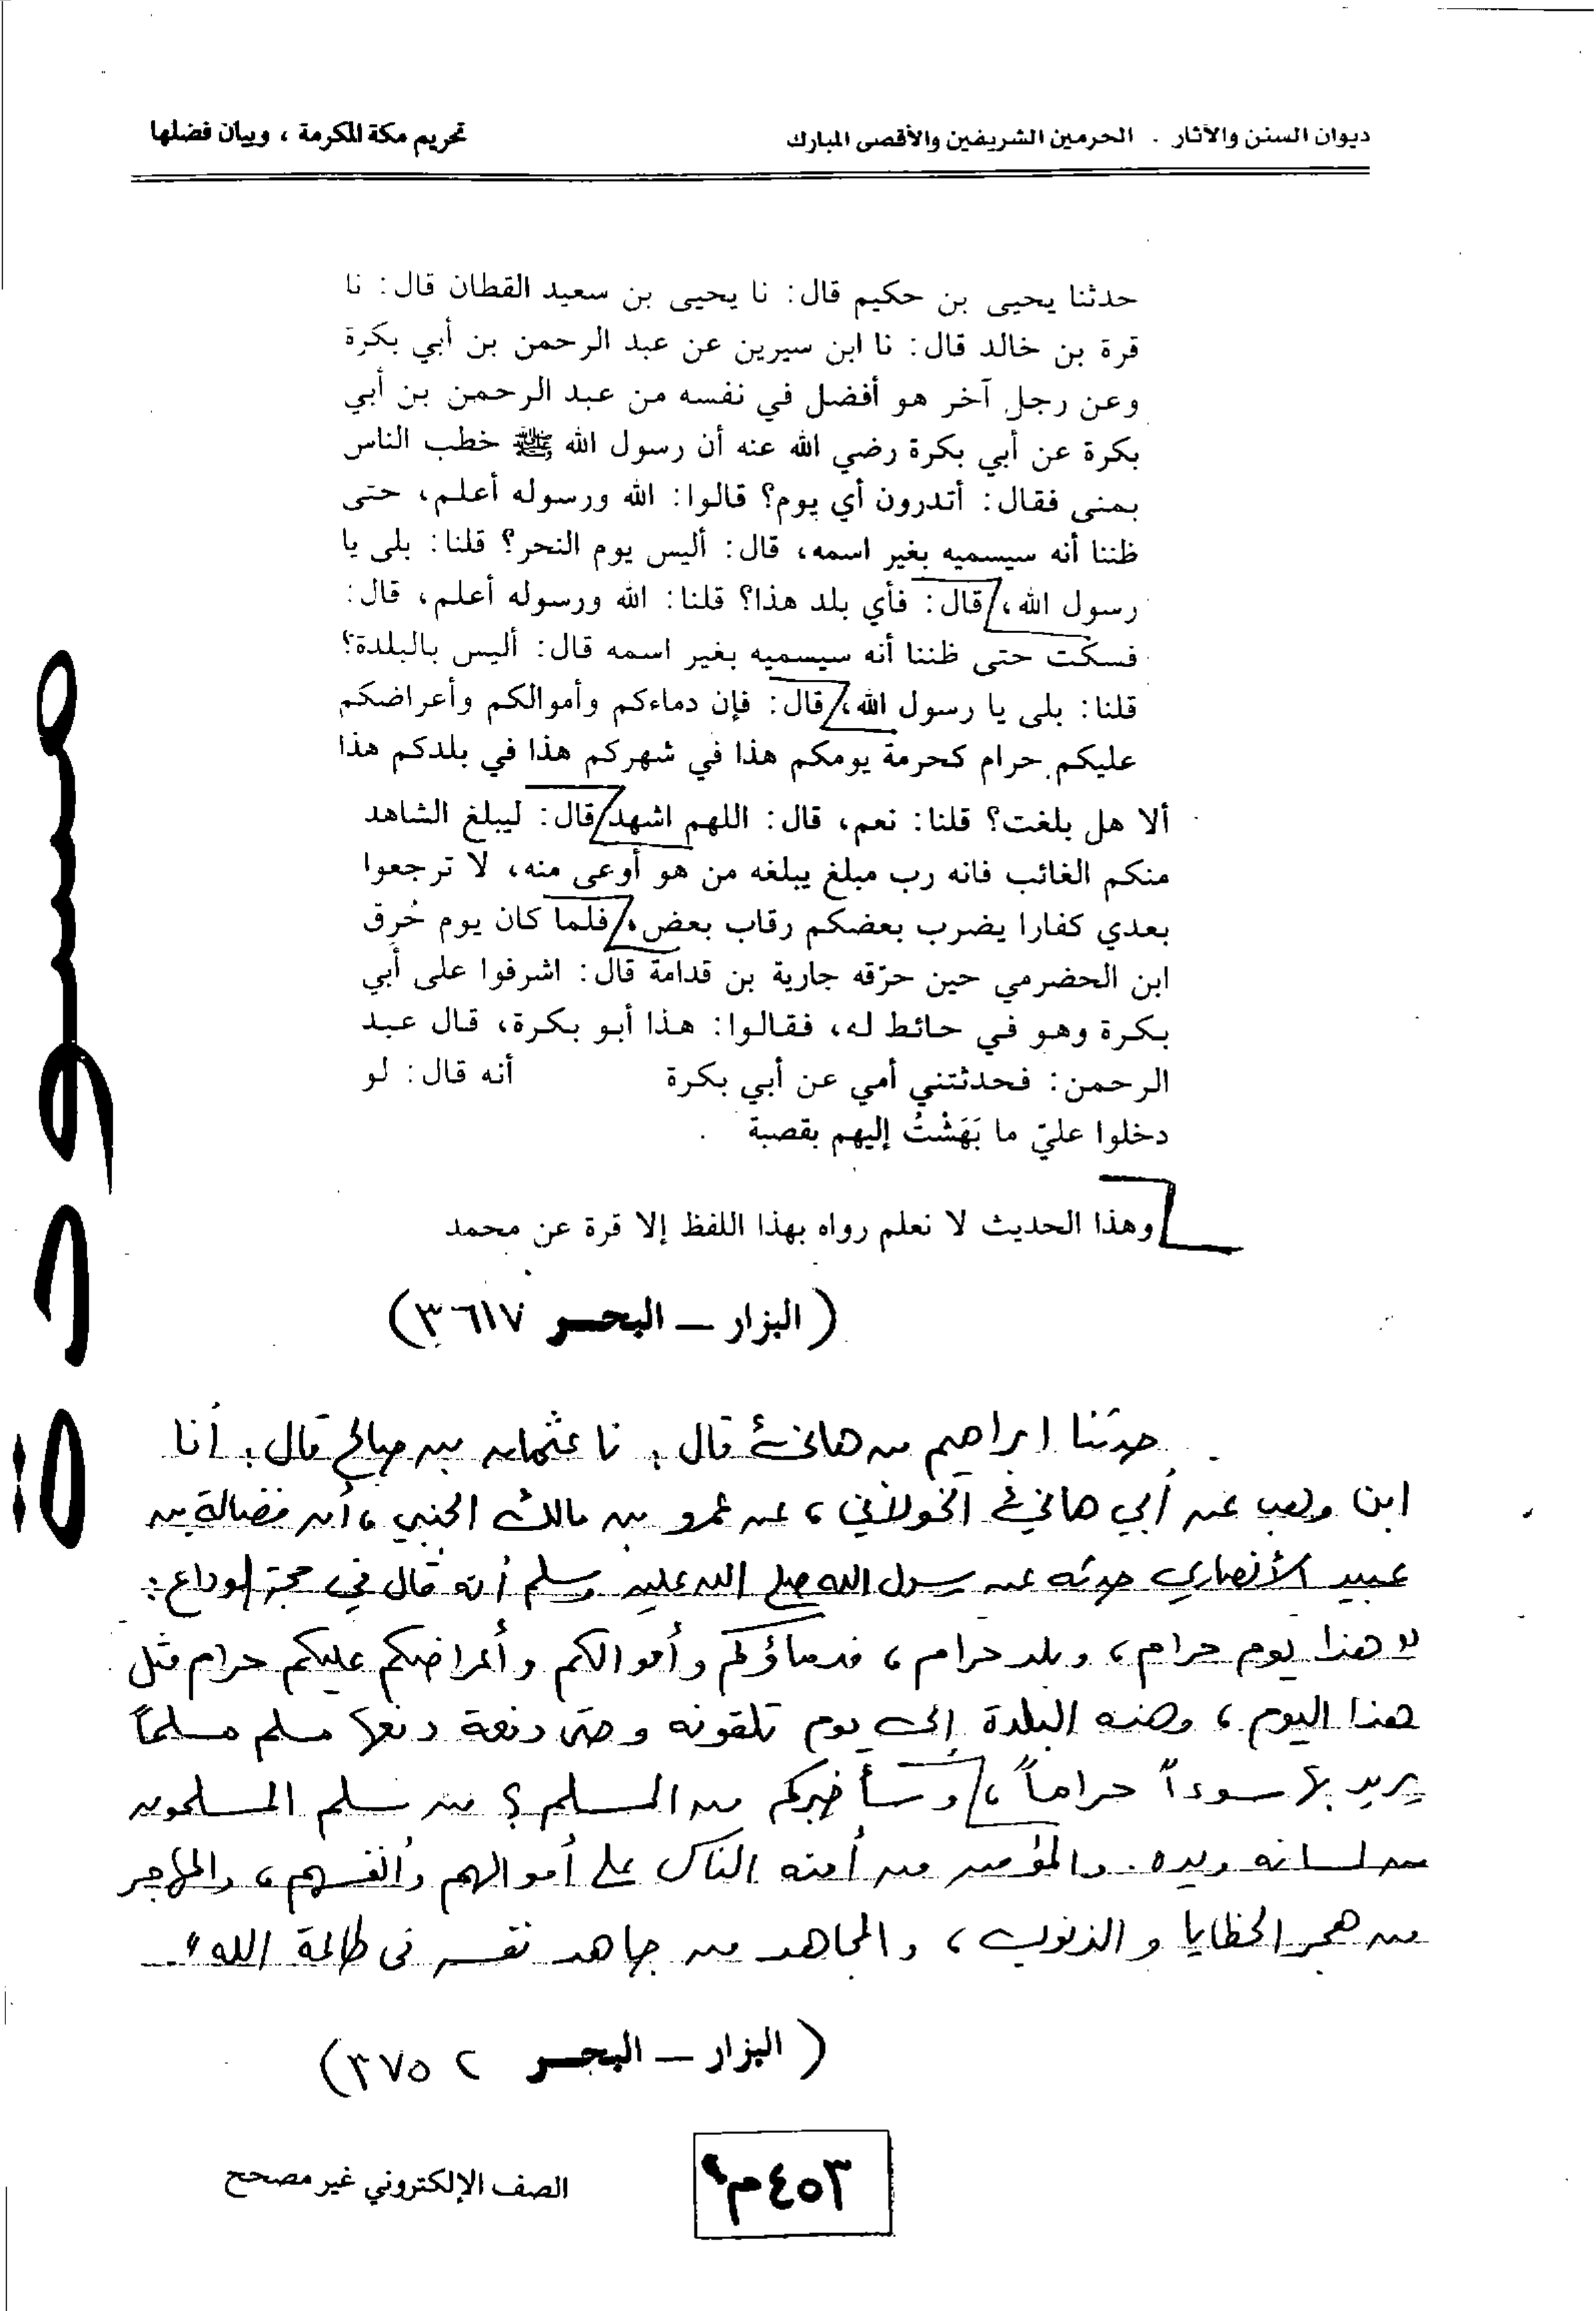 ديوان السنن والآثار . الحرمين الشريفين والأقصى المبارك
تحريم مكة المكرمة ، وبيان فضلها
حدثنا يحيى بن حكيم قال: نا يحيى بن سعيد القطان قال: نا
قرة بن خالد قال: نا ابن سيرين عن عبد الرحمن بن أبي بكرة
وعن رجل آخر هو أفضل في نفسه من عبد الرحمن بن أبي
بكرة عن أبي بكرة رضي الله عنه أن رسول الله ﷺ خطب الناس
بمنى فقال: أتدرون أي يوم؟ قالوا: الله ورسوله أعلم، حتى
ظننا أنه سيسميه بغير اسمه، قال: أليس يوم النحر؟ قلنا: بلى يا
رسول الله، قال: فأي بلد هذا؟ قلنا: الله ورسوله أعلم، قال:
فسكت حتى ظننا أنه سيسميه بغير اسمه قال: أليس بالبلدة؟
قلنا: بلى يا رسول الله، قال: فإن دماءكم وأموالكم وأعراضكم
عليكم حرام كحرمة يومكم هذا في شهركم هذا في بلدكم هذا
ألا هل بلغت؟ قلنا: نعم، قال: اللهم اشهد قال: ليبلغ الشاهد
منكم الغائب فانه رب مبلغ يبلغه من هو أوعى منه، لا ترجعوا
بعدي كفارا يضرب بعضكم رقاب بعض، فلما كان يوم حُرِق
ابن الحضرمي حين حرّقه جارية بن قدامة قال: اشرفوا على أبي
بكرة وهو في حائط له، فقالوا: هذا أبو بكرة، قال عبد
الرحمن: فحدثتني أمي عن أبي بكرة أنه قال: لو
دخلوا عليّ ما بَهَشْتُ إليهم بقصبة .
وهذا الحديث لا نعلم رواه بهذا اللفظ إلا قرة عن محمد
(البزار – البحر ٣٦١٧)
حدثنا ابراهيم بن هانئ قال: نا عثمان بن صالح قال: أنا
ابن وهب عن أبي هانئ الخولاني، عن عمرو بن مالك الجنبي، أن فضالة بن
عبيد الأنصاري حدثه عن رسول الله صلى الله عليه وسلم أنه قال في حجة الوداع:
" هذا يوم حرام، وبلد حرام، فدماؤكم وأموالكم وأعراضكم عليكم حرام مثل
هذا اليوم، وهذه البلدة إلى يوم تلقونه وحتى دفعة دفعها مسلم مسلماً
يريد بها سوءاً حراماً، وسأخبركم من المسلم؟ من سلم المسلمون
من لسانه ويده. والمؤمن من أمنه الناس على أموالهم وأنفسهم، والمهاجر
من هجر الخطايا والذنوب، والمجاهد من جاهد نفسه في طاعة الله".
(البزار – البحر ٣٧٥٢)
٤٥٣م٩
الصف الإلكتروني غير مصحح
مسودة